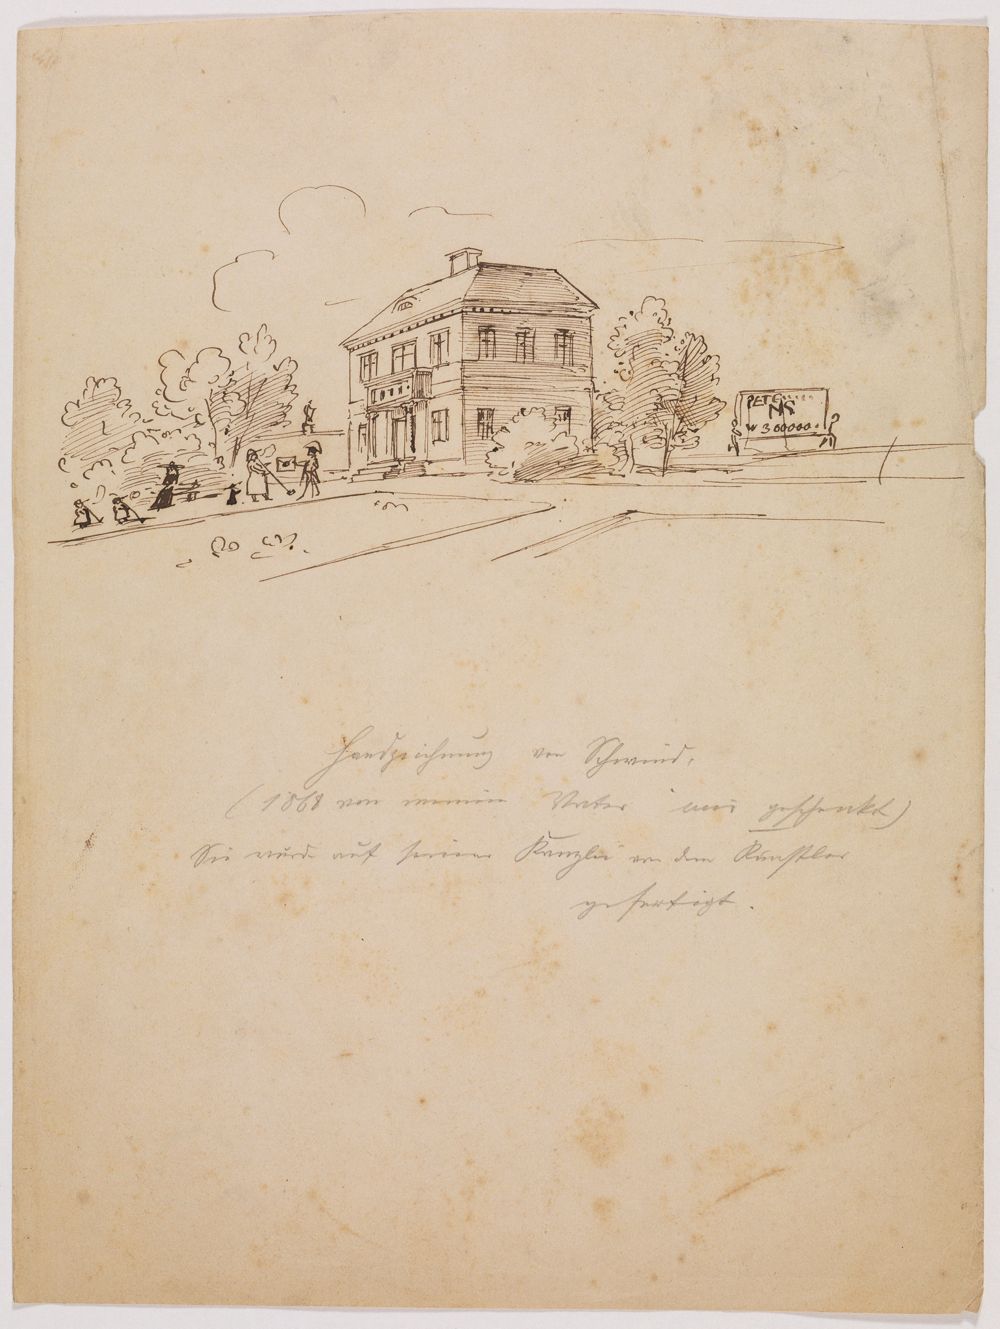 PETE
NS
W 300000.
Handzeichnung von Schwind,
(1868 von meinem Vater mir geschenkt)
Sie wurde auf seiner Kanzlei von dem Künstler
gefertigt.